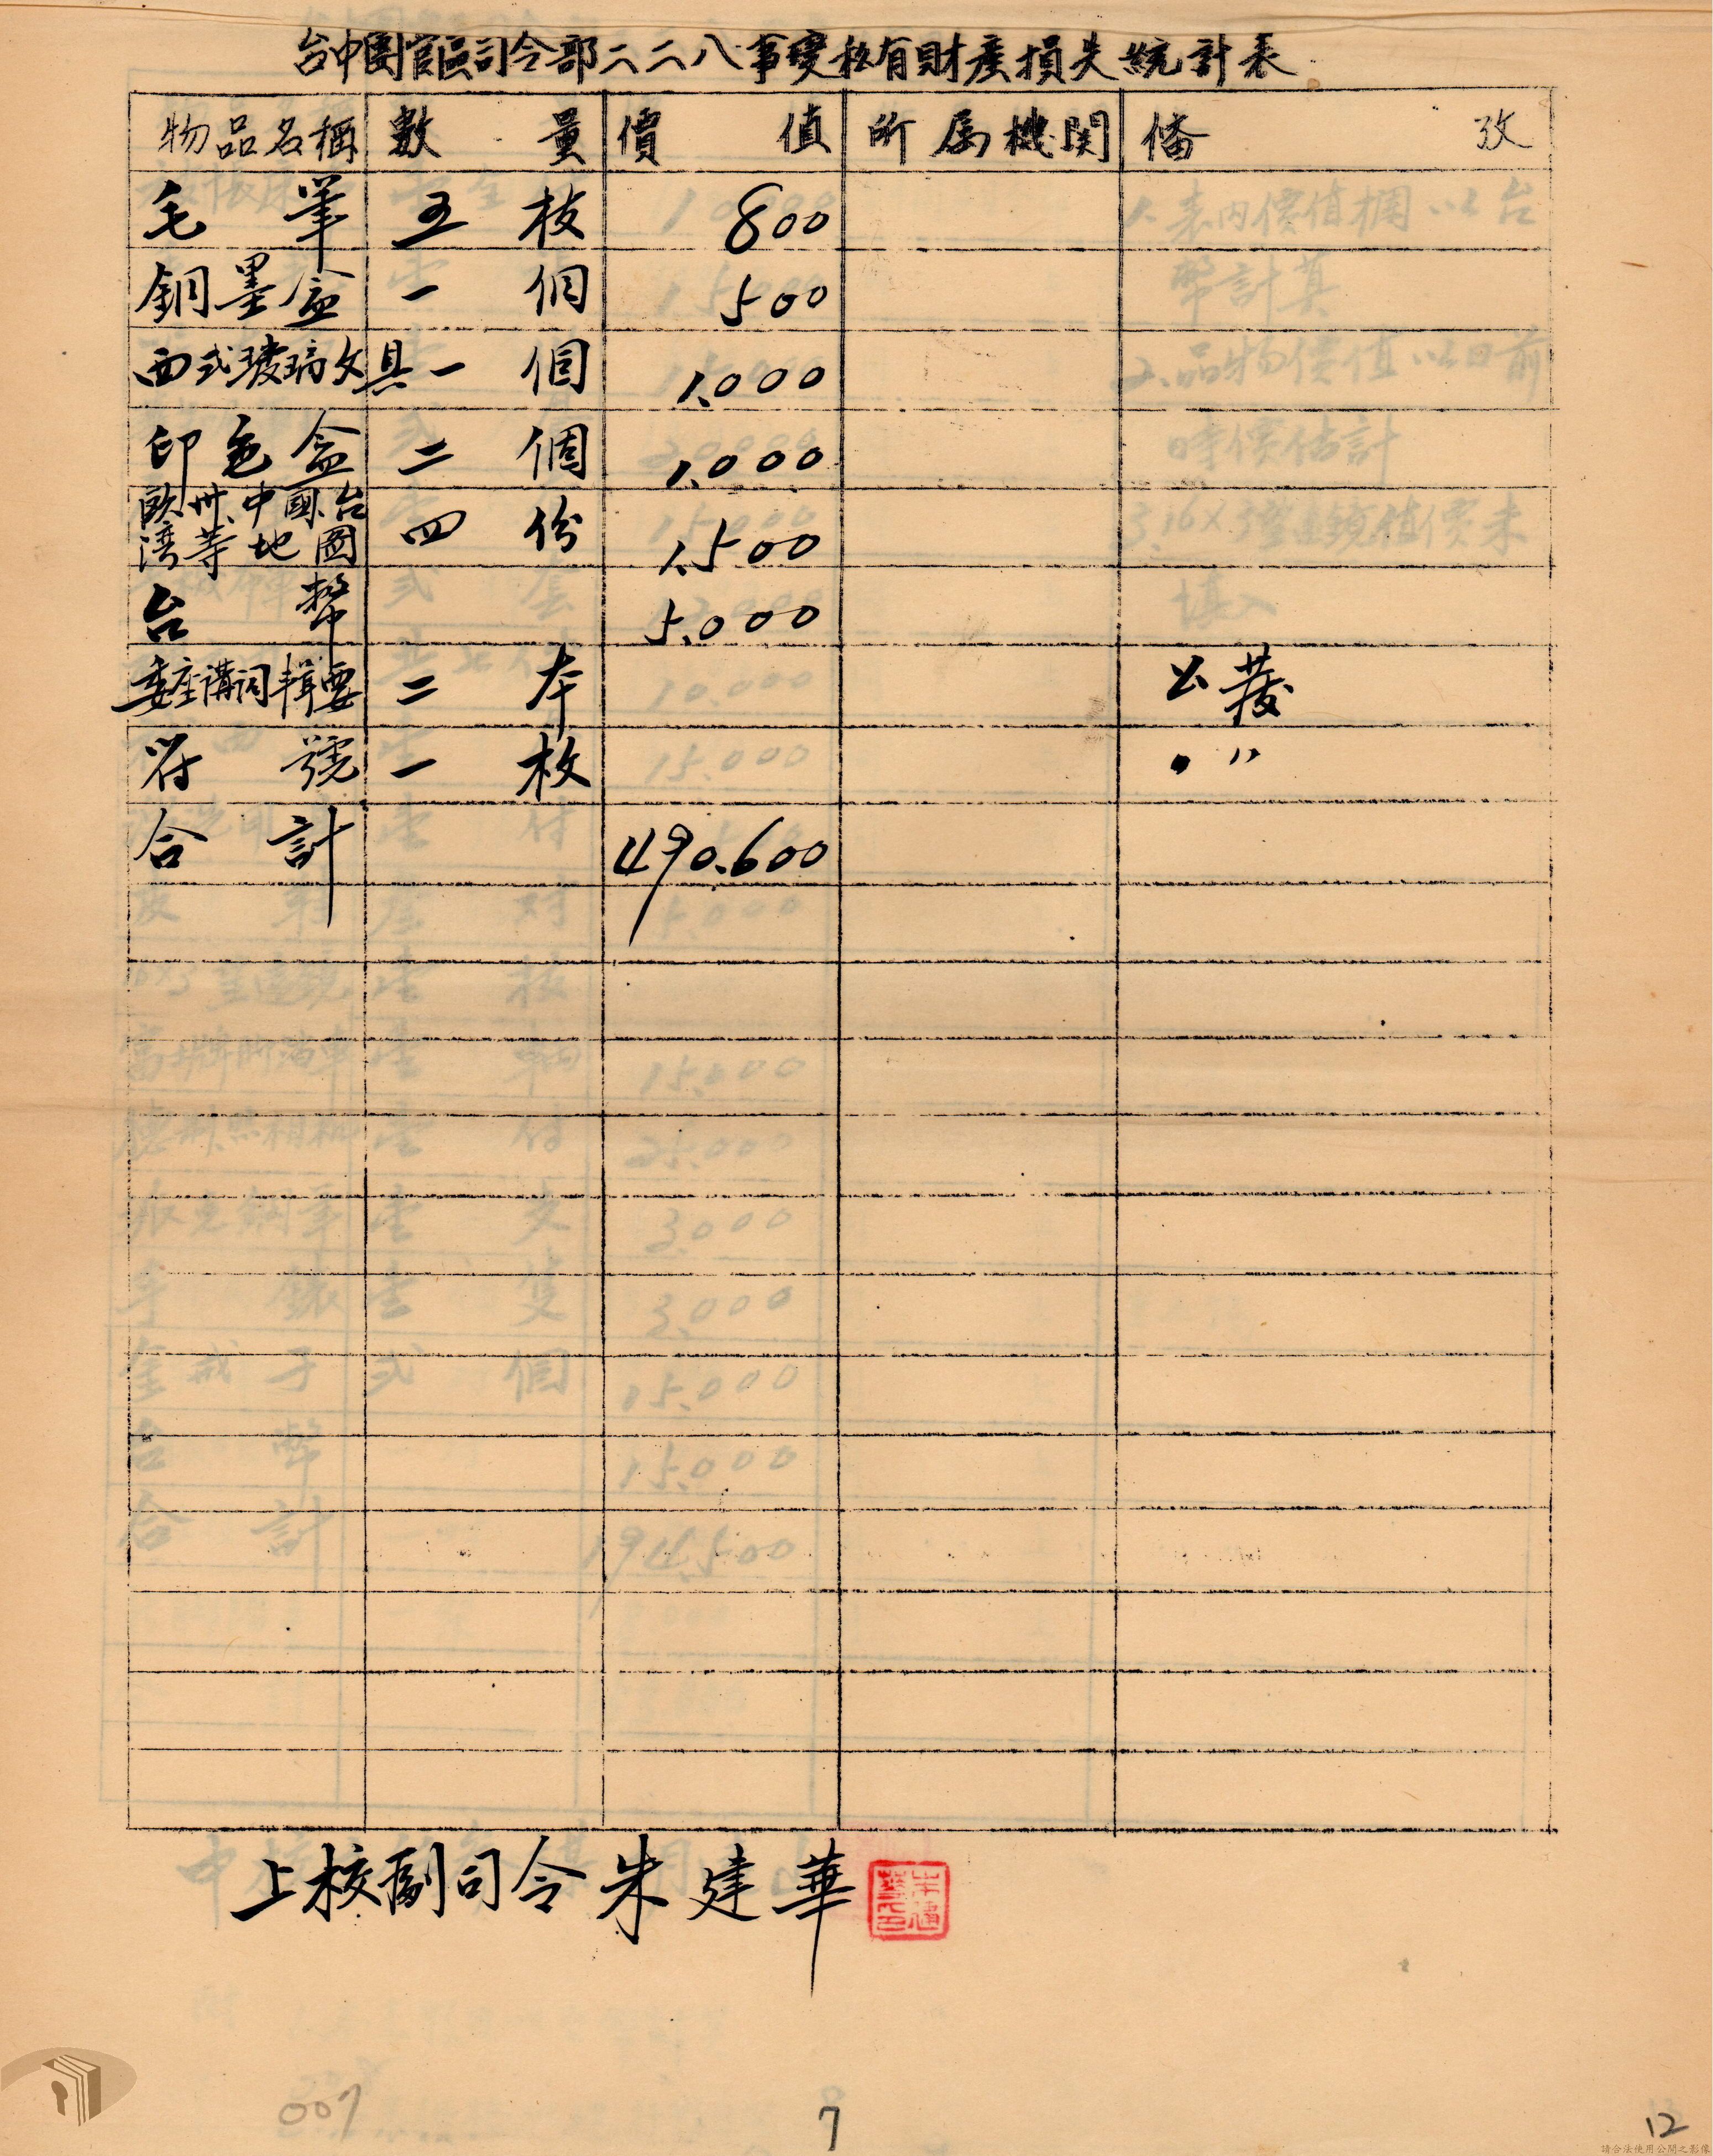 台中團管區司令部二二八事變私有財產損失統計表
物品名稱 數量 價值 所属機関 備攷
毛筆 五枝 800
銅墨盒 一個 500
西式玻璃文具 一個 1.000
印色盒 二個 1.000
欧州.中國.台湾等地圖 四份 1.500
台幣 5.000
委座講詞輯要 二本 公發
符號 一枚 〃
合計 490.600
上校副司令朱建華
007
7
12
請合法使用公開之影像